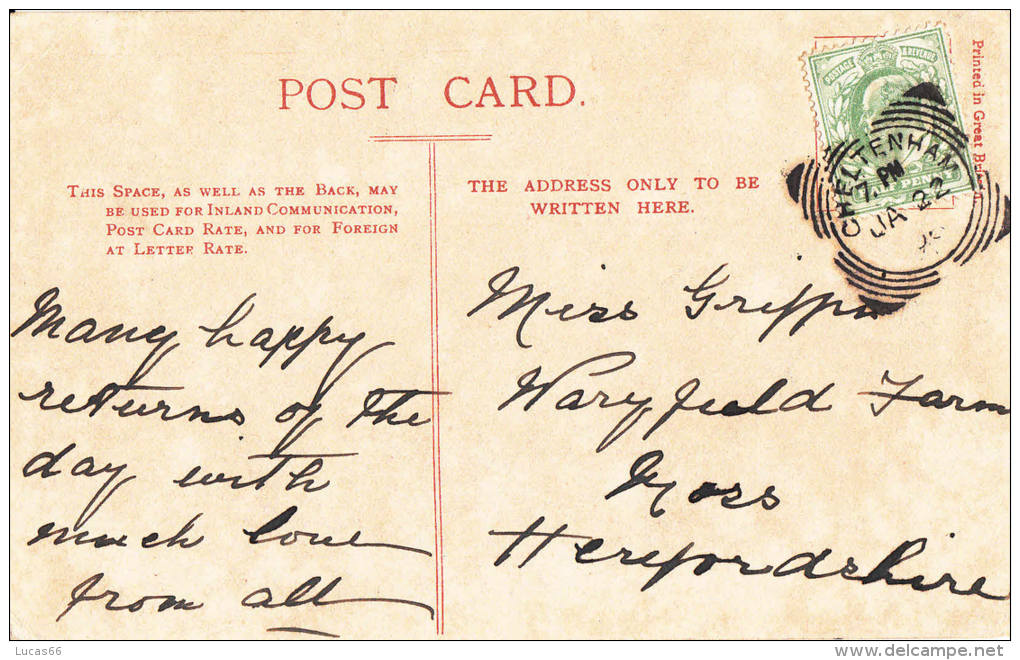 POST CARD.
Printed in Great
POSTAGE & REVENUE
CHELTENHAM
7. PM
JA 22
THIS SPACE, AS WELL AS THE BACK, MAY
BE USED FOR INLAND COMMUNICATION,
POST CARD RATE, AND FOR FOREIGN
AT LETTER RATE.
THE ADDRESS ONLY TO BE
WRITTEN HERE.
Many happy
returns of the
day with
much love
from all
Miss
Farm
Ross
Herefordshire
Lucas66
delcampe.net